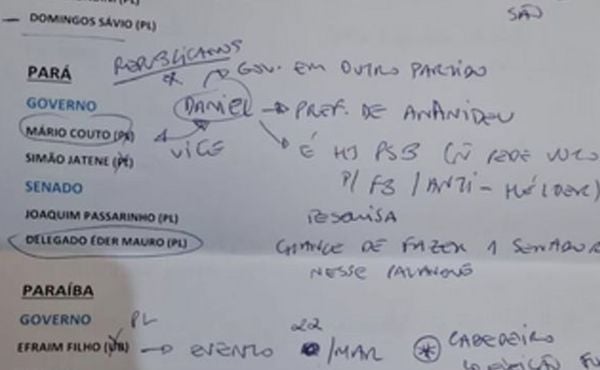 DOMINGOS SÁVIO (PL)
SÃO
PARÁ
REPUBLICANOS
GOV. EM OUTRO PARTIDO
GOVERNO
DANIEL → PREF. DE ANANINDEU
MÁRIO COUTO
VICE
É HJ PSB
SIMÃO JATENE
P/ FB / ANTI-HÉLDER)
SENADO
JOAQUIM PASSARINHO (PL)
PESQUISA
DELEGADO ÉDER MAURO (PL)
CHANCE DE FAZER 1 SENADOR
NESSE PALANQUE
PARAÍBA
GOVERNO PL
22
EFRAIM FILHO → EVENTO /MAR * CABEDELO